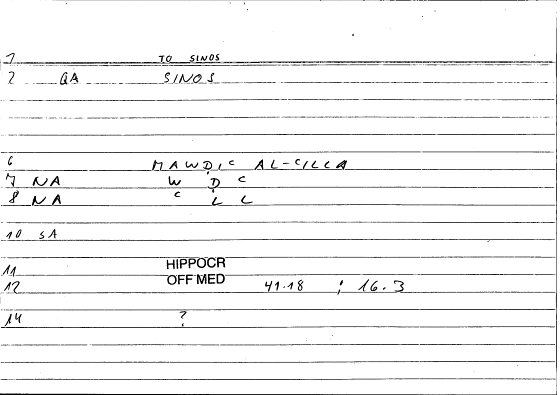 1 TO SINOS
2 GA SINOS
6 MAWḌIC AL-CILLA
7 NA W Ḍ C
8 NA C L L
10 SA
11 HIPPOCR
12 OFF MED 41.18 ; 16.3
14 ?